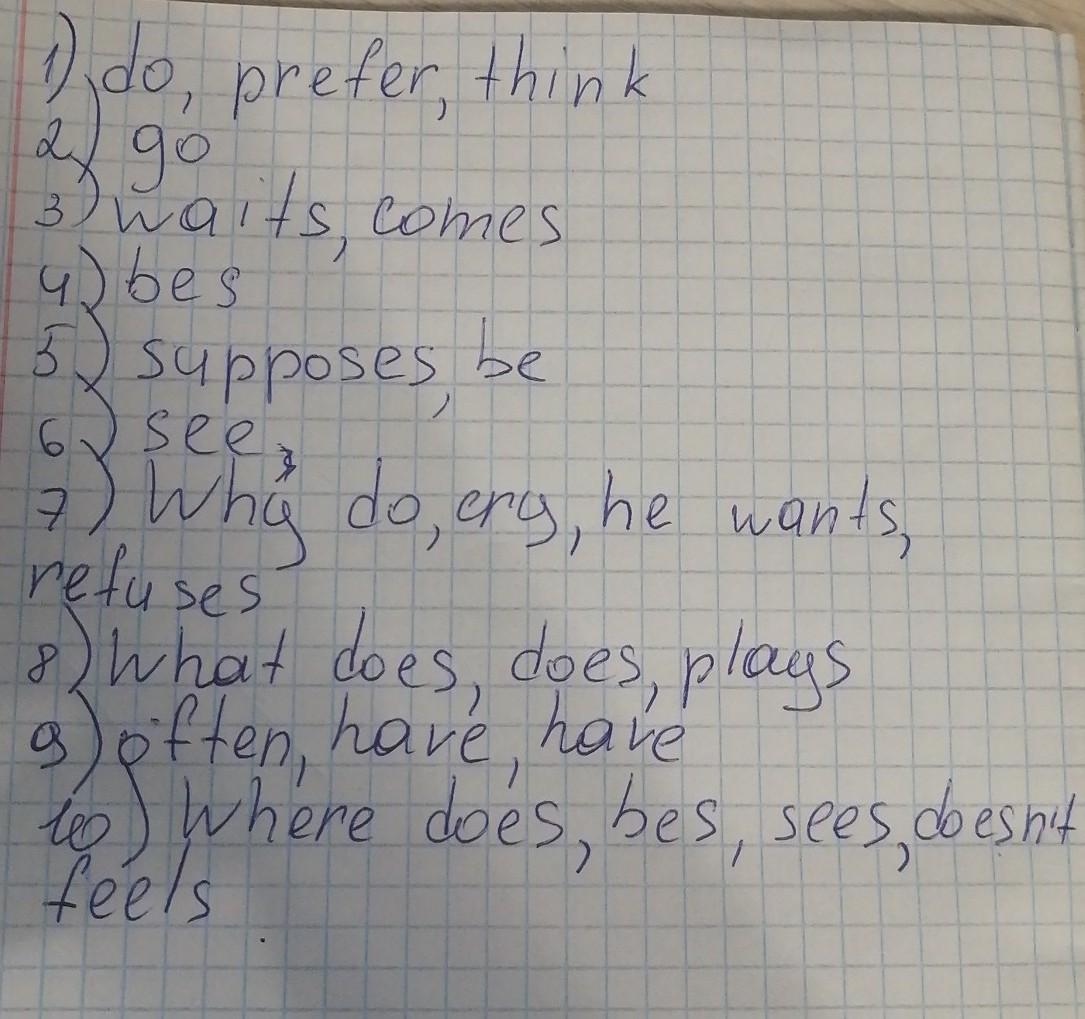 1) do, prefer, think
2) go
3) waits, comes
4) bes
5) supposes, be
6) see
7) Why do, cry, he wants,
refuses
8) What does, does, plays
9) often, have, have
10) Where does, bes, sees, doesn't
feels